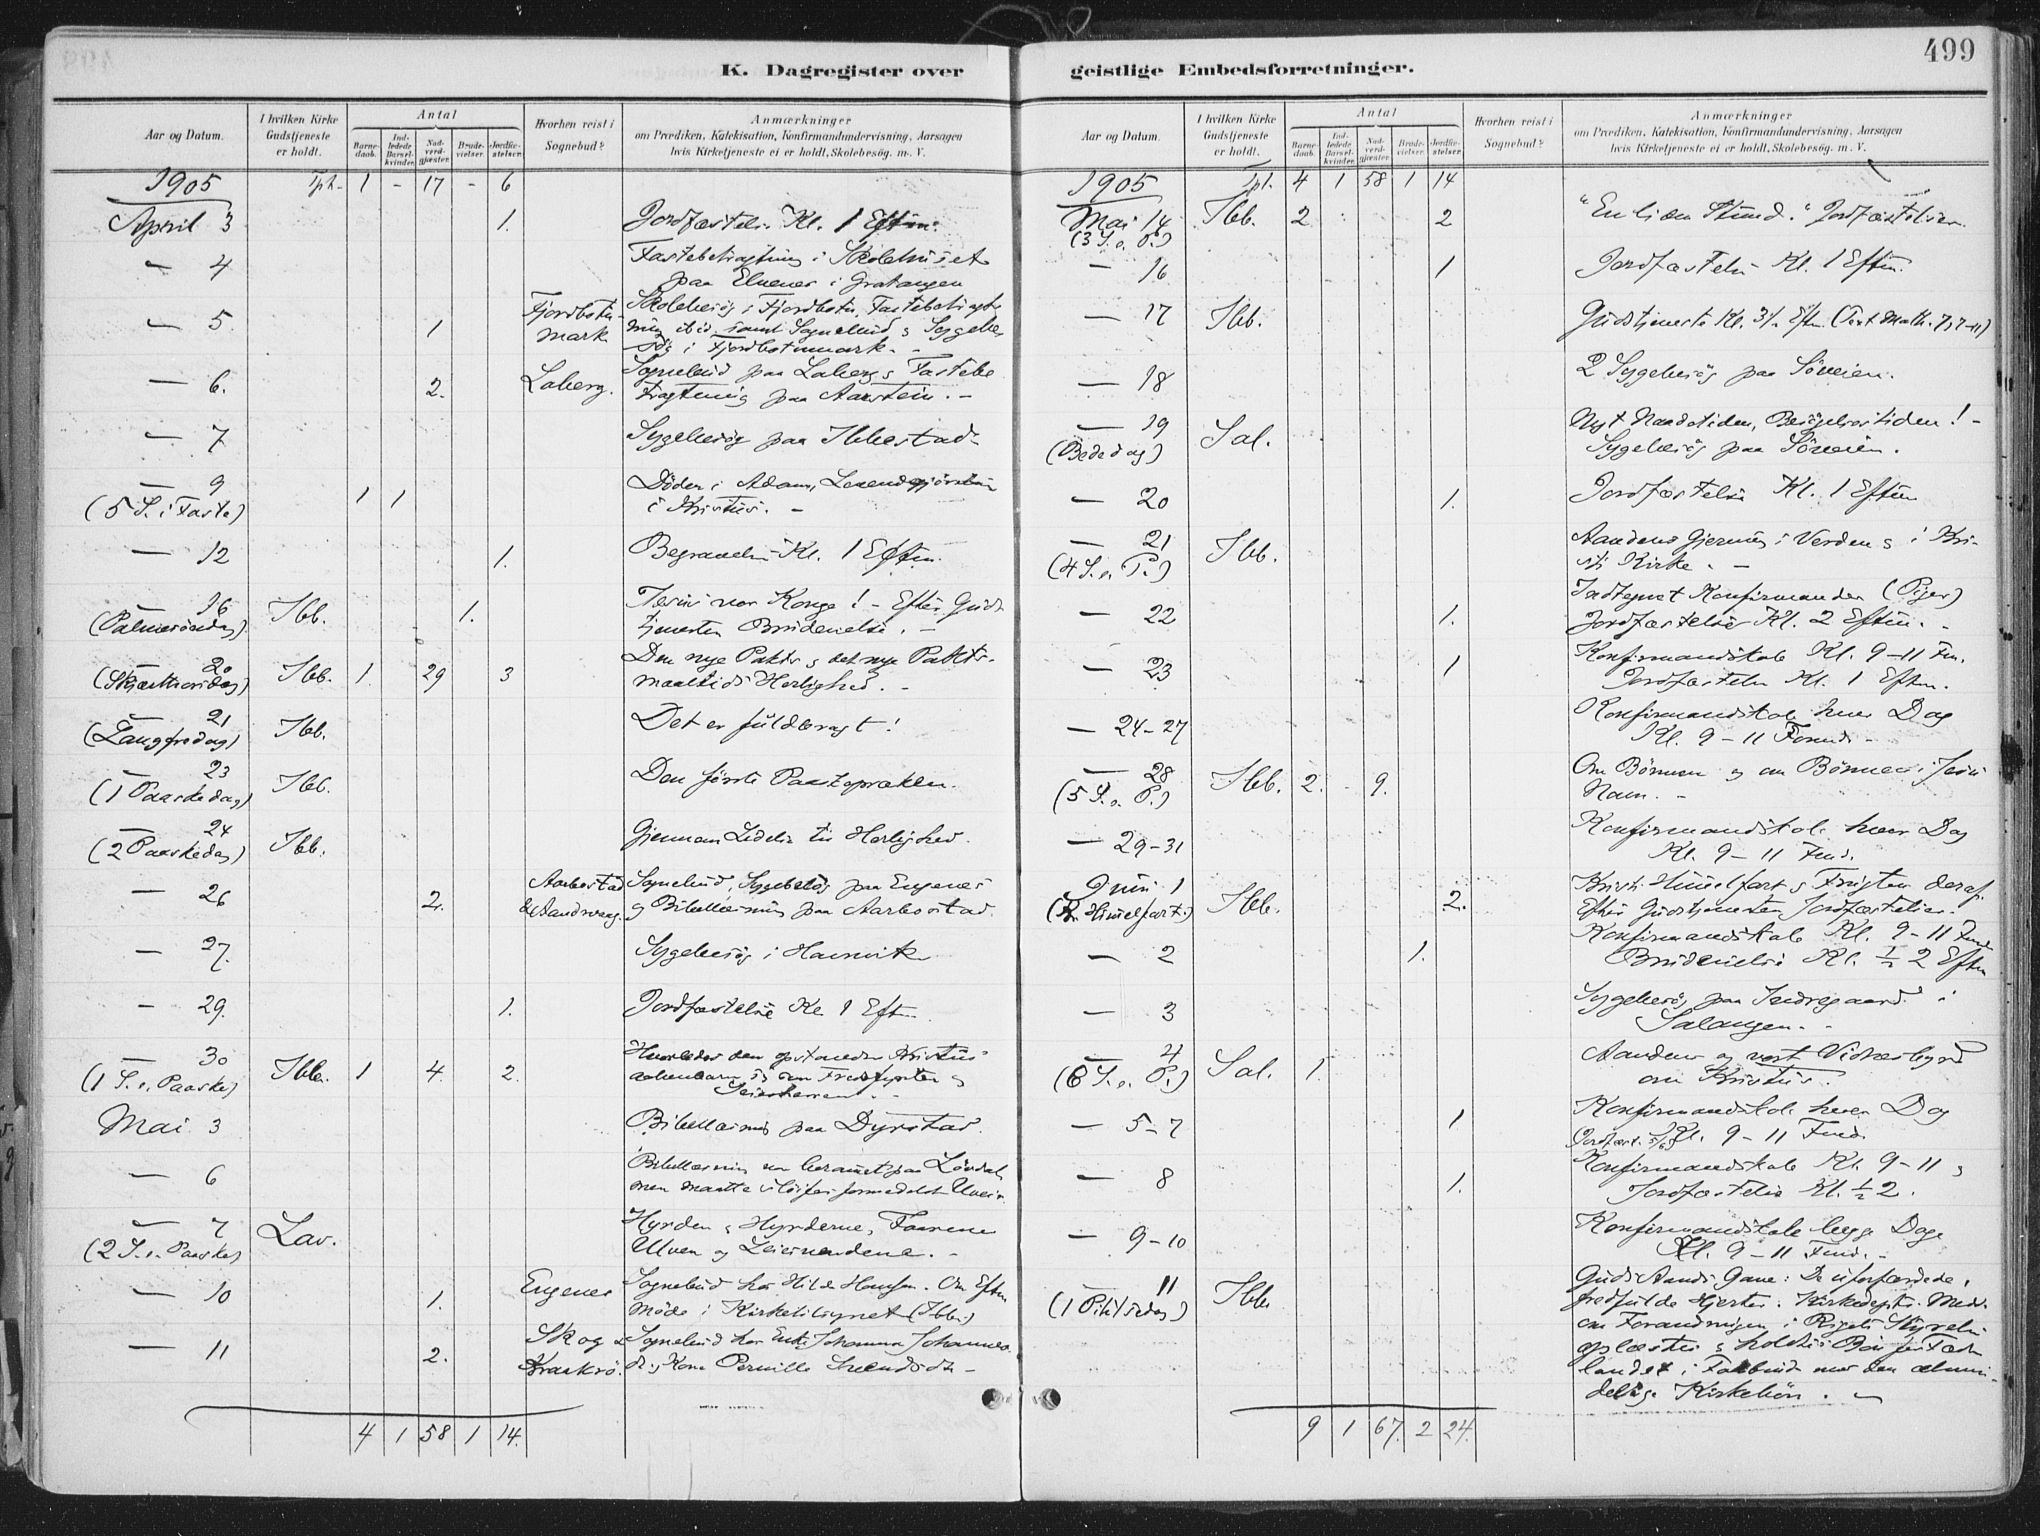 499
K. Dagregister over geistlige Embedsforretninger.
Aar og Datum.
I hvilken Kirke Gudstjeneste er holdt.
Antal
Barnedaab.
Indledede Barselkvinder.
Nadverdgjæster.
Brudevielser.
Jordfæstelser.
Hvorhen reist i Sognebud?
Anmærkninger
om Prædiken, Katekisation, Konfirmandundervisning, Aarsagen
hvis Kirketjeneste ei er holdt, Skolebesøg. m. V.
1905 Tph. 1 - 17 - 6
April 3 1. Jordfæstelse Kl. 1 Eftm.
— 4 Fastebetragtning i Skolehuset
paa Elvenes i Gratangen
— 5. 1 Fjordbotn Skolebesøg i Fjordbotn, Fastebetragt
mark ning ibid. samt Sognebud & Sygebe
søg i Fjordbotnmark. -
— 6. 2. Laberg. Sognebud paa Laberg & Fastebe
tragtning paa Aarstein. -
— 7 Sygebesøg paa Ibbestad
— 9 1 1 Døden i Adam, Levendegjørelse
(5 S. i Faste) i Kristus. -
— 12 1. Begravelse Kl. 1 Eftm.
— 16 Ibb. 1. Jesus vor Konge! - Efter Guds
(Palmesøndag) tjenesten Brudevielse. -
— 20 Ibb. 1. 29 3 Den nye Pakts & det nye Pakts-
(Skjærthorsdag) maaltids Herlighed. -
— 21 Ibb. Det er fuldbragt!
(Langfredag)
— 23 Ibb. Den første Paaskepræken.
(1 Paaskedag)
— 24 Ibb. Gjennem Lidelse til Herlighed.
(2 Paaskedag)
— 26 2. Aarbostad Sognebud, Sygebesøg paa Engenes
& Aandervaag. og Bibellæsning paa Aarbostad.
— 27. Sygebesøg i Hamnvik
— 29. 1. Jordfæstelse Kl 1 Eftm.
— 30 Ibb. 1 4. 2. Hvorledes den opstandne Kristus
(1 S. e. Paaske) aabenbarer sig som Fredsfyrsten &
Seiersherren. -
Mai 3 Bibellæsning paa Dyrstad.
— 6 Bibellæsning var berammet paa Løvdal
men maatte sløifes formedelst Uveir.
— 7 Lav. Hyrden & Hyrderne, Faarene
(2 S. e. Paaske) Ulven og Leiesvendene. -
— 10 1. Engenes Sognebud hos Hilda Hansen. Om Eftm
Møde i Kirketilsynet (Ibb.)
— 11 2. Skog & Sognebud hos Enke Johanna Johannes
Kraakrø. dt. & Kone Pernille Svendsdt. -
4 1 58 1 14.
Aar og Datum.
I hvilken Kirke Gudstjeneste er holdt.
Antal
Barnedaab.
Indledede Barselkvinder.
Nadverdgjæster.
Brudevielser.
Jordfæstelser.
Hvorhen reist i Sognebud?
Anmærkninger
om Prædiken, Katekisation, Konfirmandundervisning, Aarsagen
hvis Kirketjeneste ei er holdt, Skolebesøg. m. V.
1905 Tpt. 4 1 58 1 14
Mai 14 Ibb. 2 2 "En liden Stund." Jordfæstelser.
(3 S. e. P.)
— 16 1 Jordfæstelse Kl. 1 Eftm.
— 17 Ibb. Gudstjeneste Kl. 3½ Eftm. (Text Math. 7, 7-11)
— 18 2 Sygebesøg paa Søveien.
— 19 Sal. Nyt Naadetiden, Besøgelsestiden! -
(Bededag) Sygebesøg paa Søveien.
— 20 1. Jordfæstelse Kl. 1 Eftm
— 21 Ibb. Aandens Gjerning i Verden & i Kri-
(4 S. e. P.) sti Kirke. -
Indtegnet Konfirmander (Piger)
— 22 1. Jordfæstelse Kl. 2 Eftm. -
— 23 1 Konfirmandskole Kl. 9-11 Fm.
Jordfæstelse Kl. 1 Eftm.
— 24-27 Konfirmandskole hver Dag
Kl. 9-11 Formd. -
— 28 Ibb. 2. - 9. Om Bønnen og om Bønnen i Jesu
(5 S. e. P.) Navn. -
— 29-31 Konfirmandskole hver Dag
Kl. 9-11 Fmd.
Juni 1 Ibb. 2. Kristi Himmelfart & Frugten deraf.
(Kr. Himmelfart.) Efter Gudstjenesten Jordfæstelser.
— 2 1. Konfirmandskole Kl. 9-11 Fmd
Brudevielse Kl. ½ 2 Eftm
— 3 Sygebesøg paa Indregaard i
Salangen. -
— 4 Sal. 1. Aandens og vort Vidnesbyrd
(6 S. e. P.) om Kristus.
— 5-7 1 Konfirmandskole hver Dag
Jordfæst. 5/6 Kl. 9-11 Fmd.
— 8 1. Konfirmandskole Kl. 9-11 &
Jordfæstelse Kl. ½ 2.
— 9-10 Konfirmandskole begge Dage
Kl. 9-11 Fmd. -
— 11 Ibb. Guds Aands Gave: De uforfærdede,
(1 Pintsedag) fredfulde Hjerter. Kirkedepts. Medd.
om Forandringen i Rigets Styrelse
oplæstes & holdtes Bøn for Fædre
landet i Forbind. med den almin-
delige Kirkebøn. -
9 1 67. 2 24.